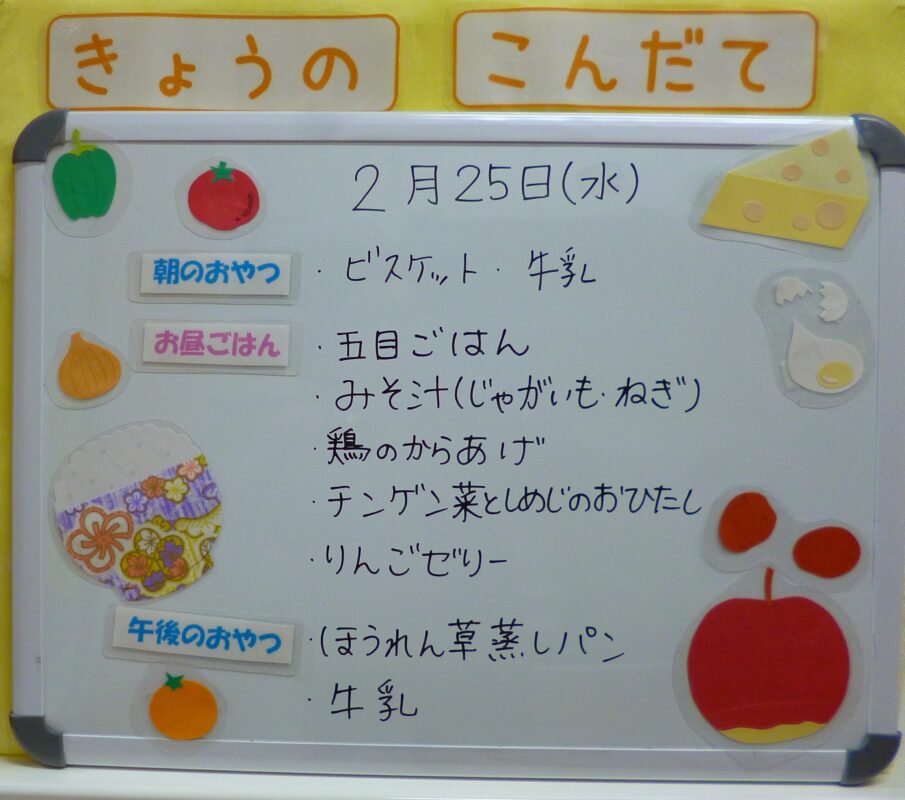 きょうの こんだて
2月25日(水)
朝のおやつ ・ビスケット・牛乳
お昼ごはん ・五目ごはん
・みそ汁(じゃがいも・ねぎ)
・鶏のからあげ
・チンゲン菜としめじのおひたし
・りんごゼリー
午後のおやつ ・ほうれん草蒸しパン
・牛乳